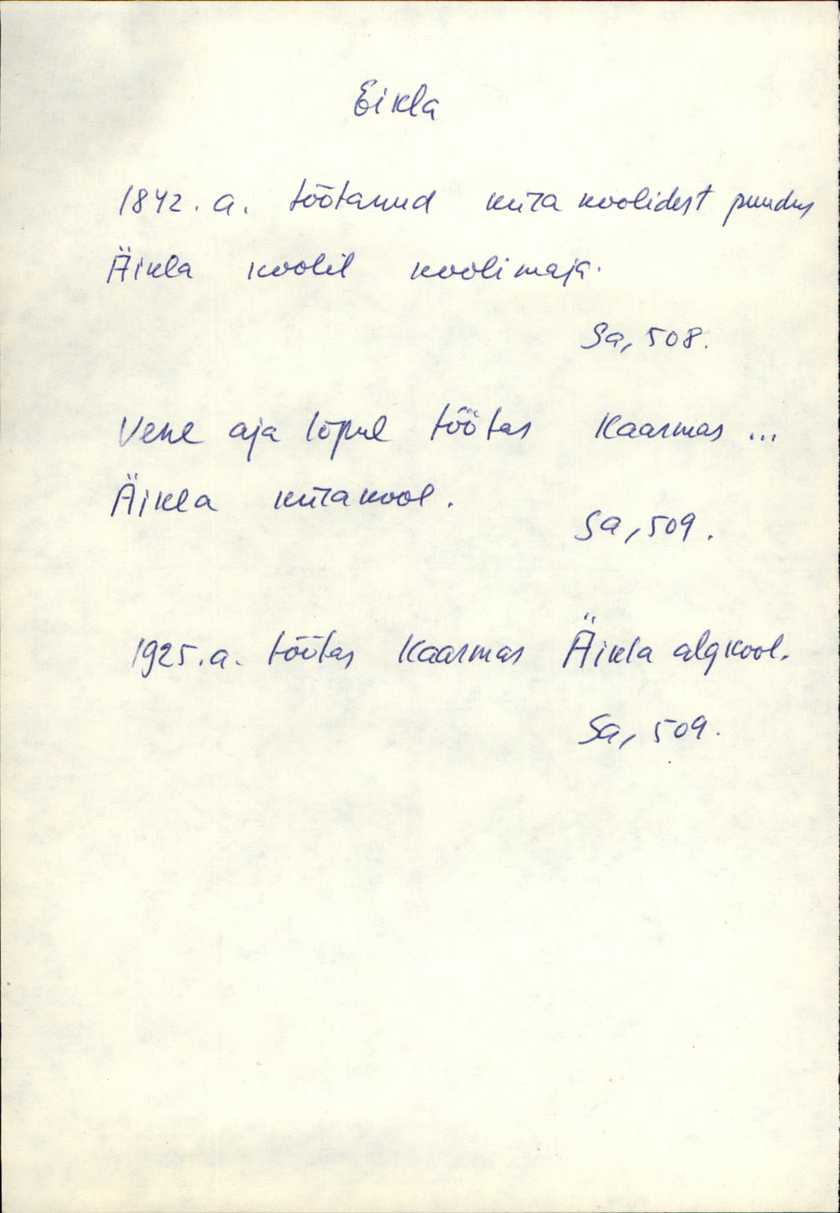 Eikla
1842. a. töötanud küla koolidest puudus
Äikla koolil koolimaja.
Sa, 508.
Vene aja lõpul töötas Kaarmas ...
Äikla külakool.
Sa, 509.
1925. a. töötas Kaarmas Äikla algkool.
Sa, 509.